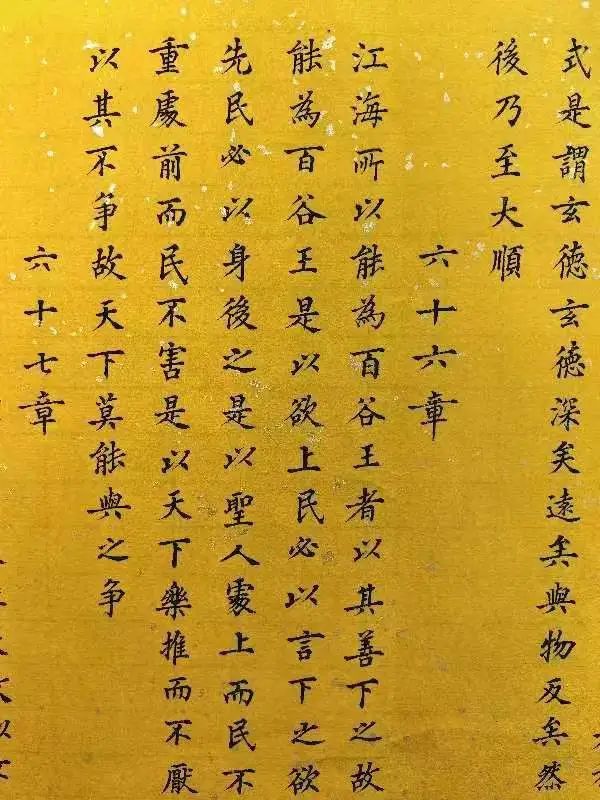 式是謂玄德玄德深矣遠矣與物反矣然
後乃至大順
六十六章
江海所以能為百谷王者以其善下之故
能為百谷王是以欲上民必以言下之欲
先民必以身後之是以聖人處上而民不
重處前而民不害是以天下樂推而不厭
以其不爭故天下莫能與之爭
六十七章